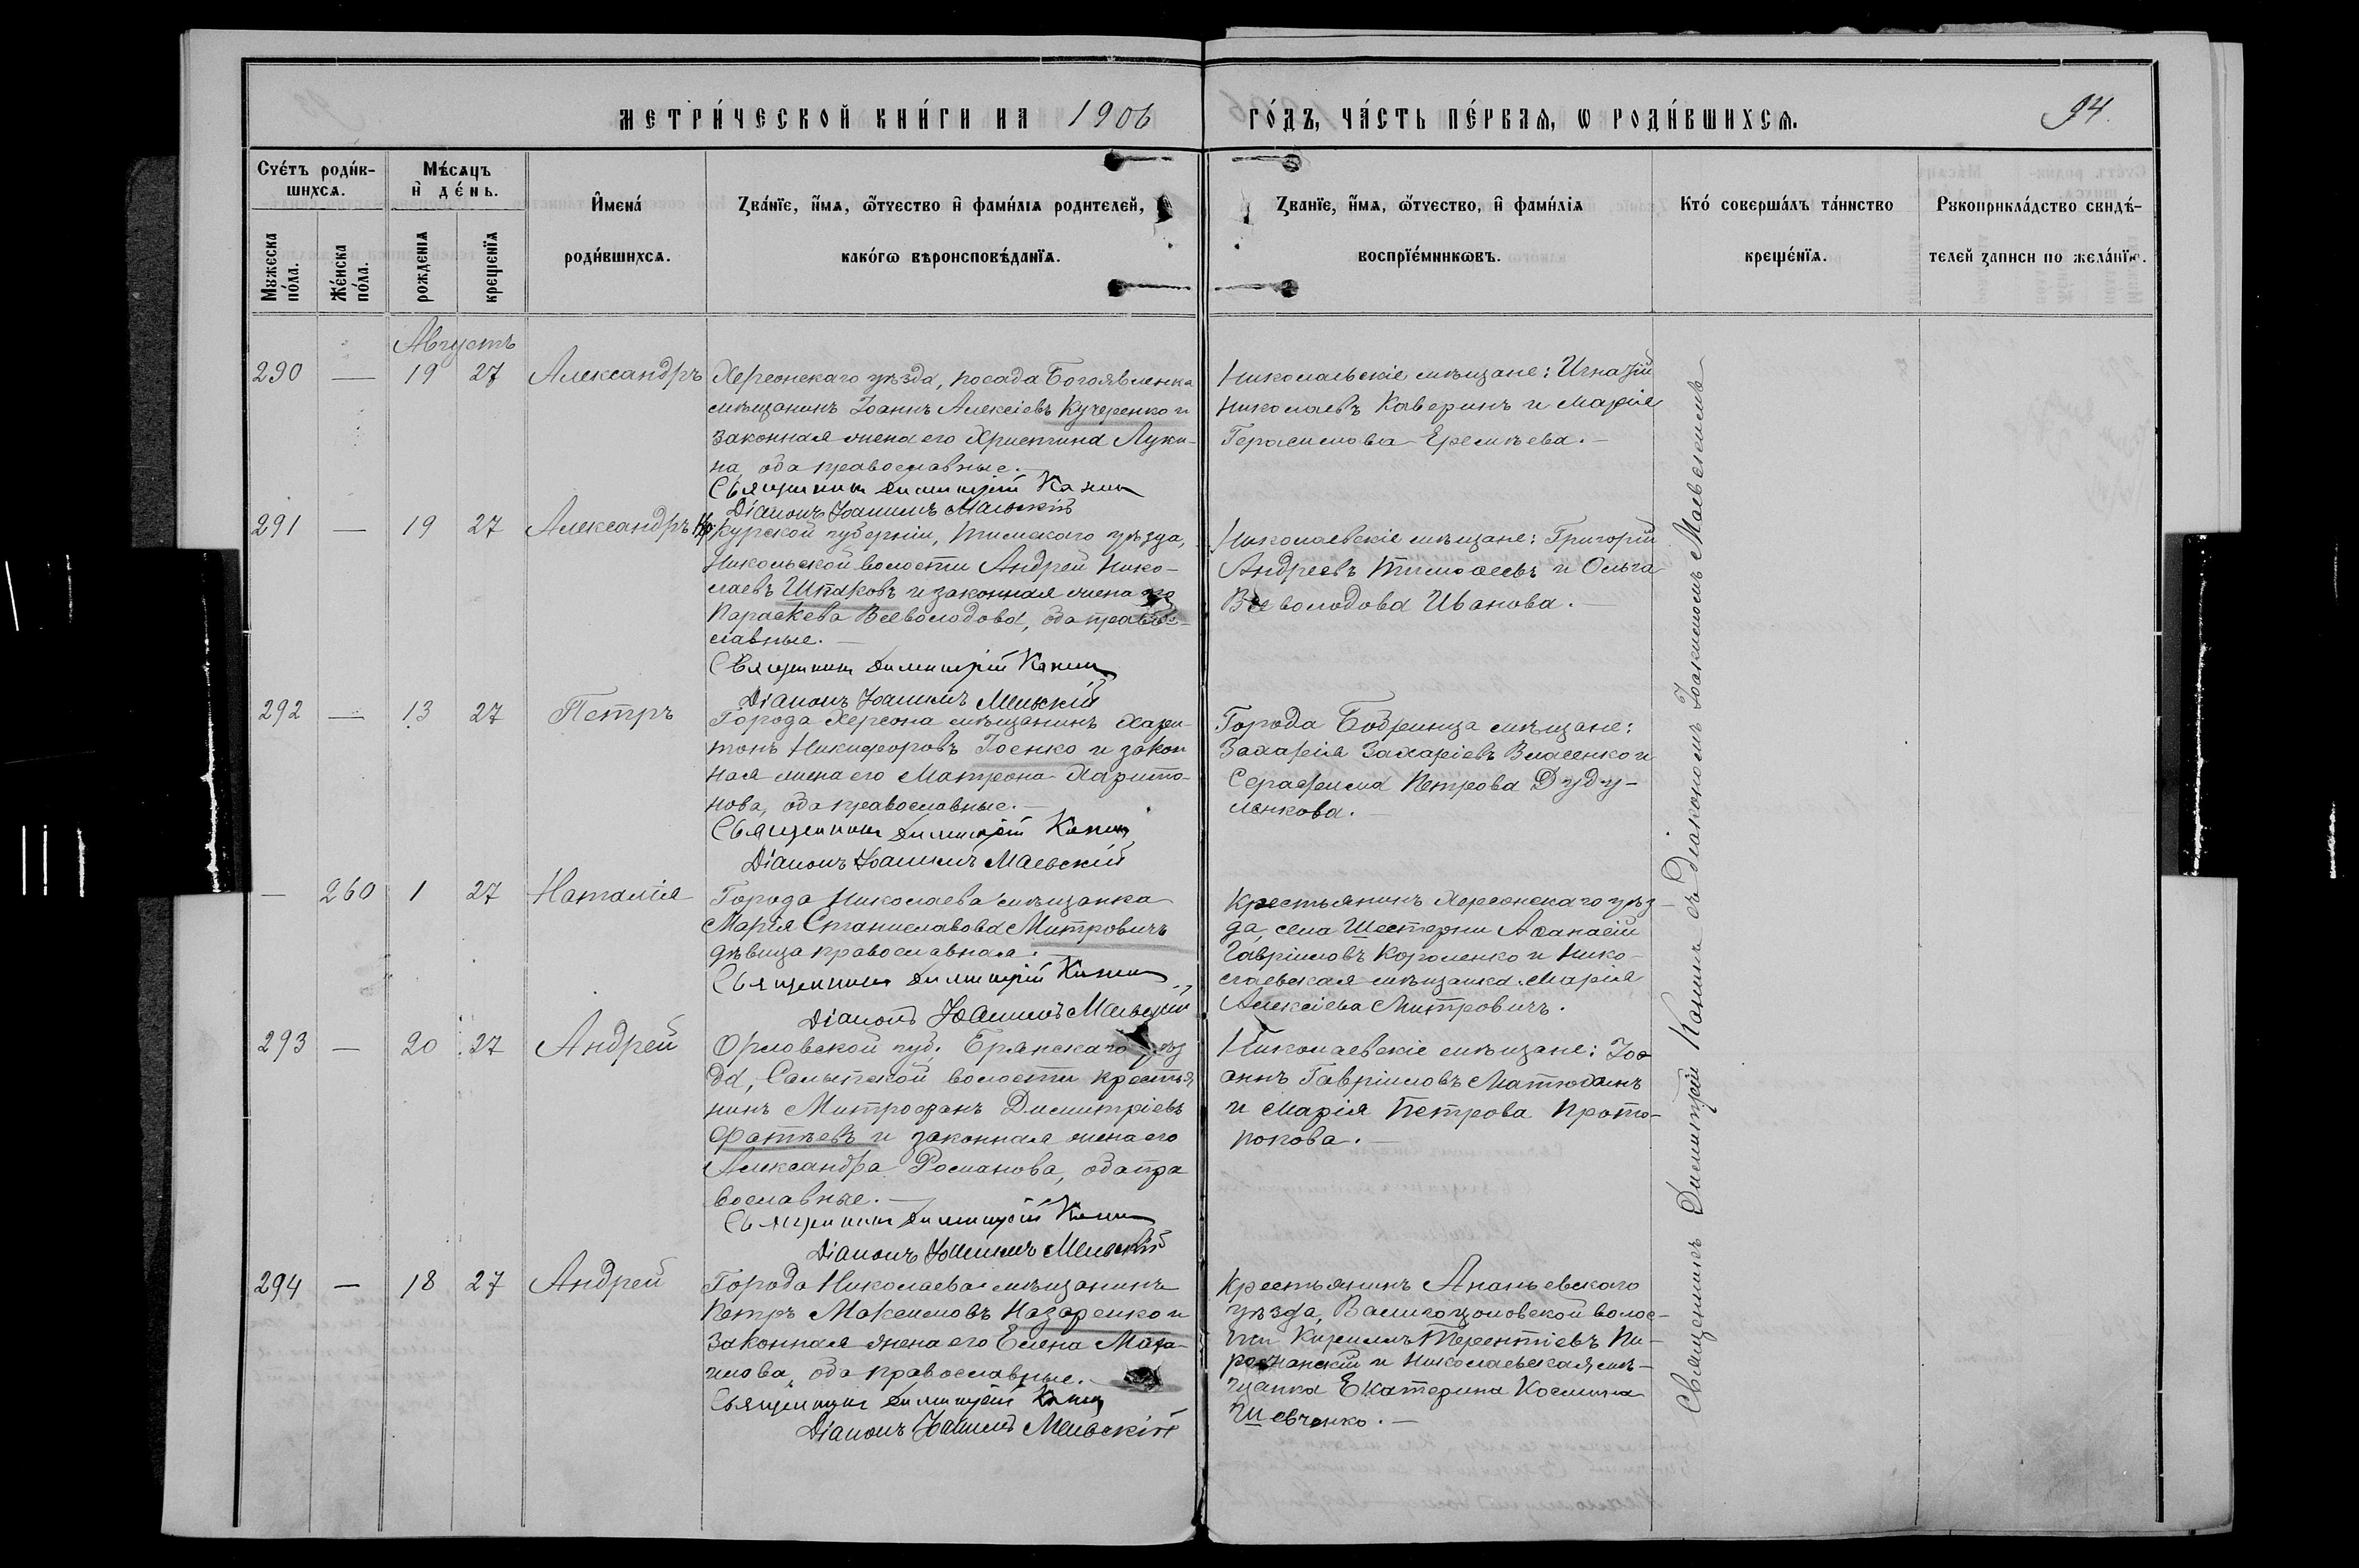 МЕТРИ́ЧЕСКОЙ КНИ́ГИ НА 1906 ГО́ДЪ, ЧА́СТЬ ПЕ́РВАѦ, Ѡ РОДИ́ВШИХСѦ.
94.
Счётъ роди́вшихсѧ.
Мужеска по́ла.
Же́нска по́ла.
Мѣ́сѧцъ и҆ де́нь.
рожденіѧ
крещенїѧ
И҆мена́ роди́вшихсѧ.
Зва́нїе, и҆́мѧ, ѻ҆́тчество и҆ фамѝліѧ родителей,
како́гѡ вѣроисповѣ́данїѧ.
Званїе, и҆́мѧ, ѻ҆́тчество, и҆ фамѝліѧ
воспрїе́мникѡвъ.
Кто́ соверша́лъ та́инство
креще́нїѧ.
Рукоприкла́дство свидѣ́-
телей записи по жела́нїю.
Августъ
290 — 19 27 Александръ
Херсонскаго уѣзда, посада Богоявленка
мѣщанинъ Іоаннъ Алексіевъ Кучеренко и
законная жена его Христина Луки-
на, оба православные.
Священникъ Димитрій Канин
Діаконъ Іоакимъ Маевскій
Николаевскіе мѣщане: Игнатій
Николаевъ Каверинъ и Марія
Герасимова Еремѣева.—
291 — 19 27 Александръ
Курской губерніи, Тимскаго уѣзда,
Никольской волости Андрей Нико-
лаевъ Шпаковъ и законная жена его
Параскева Всеволодова, оба право-
славные.—
Священникъ Димитрій Канин
Діаконъ Іоакимъ Маевскій
Николаевскіе мѣщане: Григорій
Андреевъ Тимоѳеевъ и Ольга
Всеволодова Иванова.—
292 — 13 27 Петръ
Города Херсона мѣщанинъ Хари-
тонъ Никифоровъ Іоенко и закон
ная жена его Матрона Харито-
нова, оба православные.—
Священникъ Димитрій Канин
Діаконъ Іоакимъ Маевскій
Города Бобринца мѣщане:
Захарія Захаріевъ Власенко и
Серафима Петрова Дуду-
ленкова.—
— 260 1 27 Наталія
Города Николаева мѣщанка
Марія Станиславова Митровичъ
дѣвица православная.
Священникъ Димитрій Канин
Діаконъ Іоакимъ Маевскій
Крестьянинъ Херсонскаго уѣз-
да, села Шестерни Аѳанасій
Гавріиловъ Короленко и Нико-
лаевская мѣщанка Марія
Алексіева Митровичъ.
293 — 20 27 Андрей
Орловской губ. Брянскаго уѣз
да, Салынской волости крестья
нинъ Митрофанъ Димитріевъ
Фатѣевъ и законная жена его
Александра Романова, оба пра
вославные.—
Священникъ Димитрій Канин
Діаконъ Іоакимъ Маевскій
Николаевскіе мѣщане: Іоа
ннъ Гавріиловъ Матюхинъ
и Марія Петрова Прото-
попова.—
294 — 18 27 Андрей
Города Николаева мѣщанинъ
Петръ Максимовъ Назаренко и
законная жена его Елена
оба православные.
Священникъ Димитрій Канин
Діаконъ Іоакимъ Маевскій
Крестьянинъ Ананьевскаго
уѣзда, волос-
ти Кириллъ Терентіевъ
и Николаевская мѣ-
щанка Екатерина Космина
Шевченко.—
Священникъ Димитрій Канинъ съ Діакономъ Іоакимомъ Маевскимъ